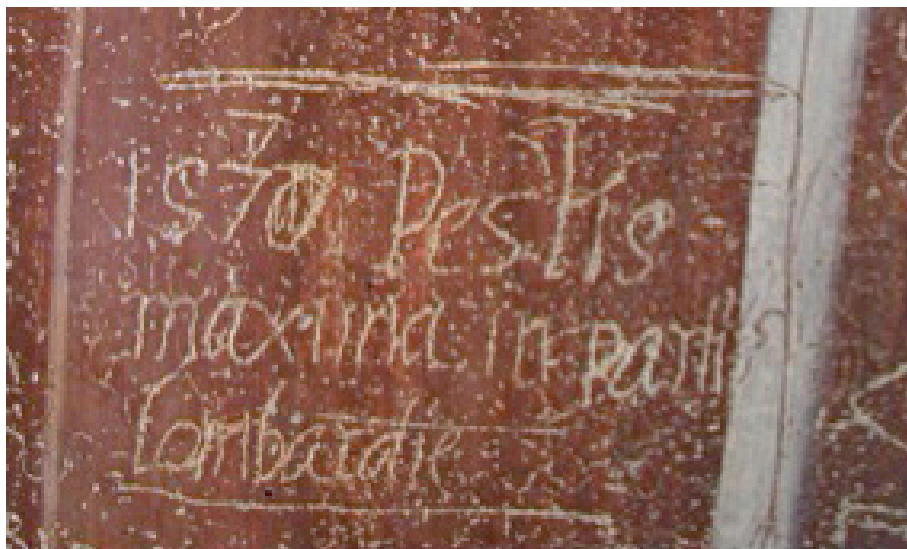 1570 Pestis
maxima in partis
Lombardie